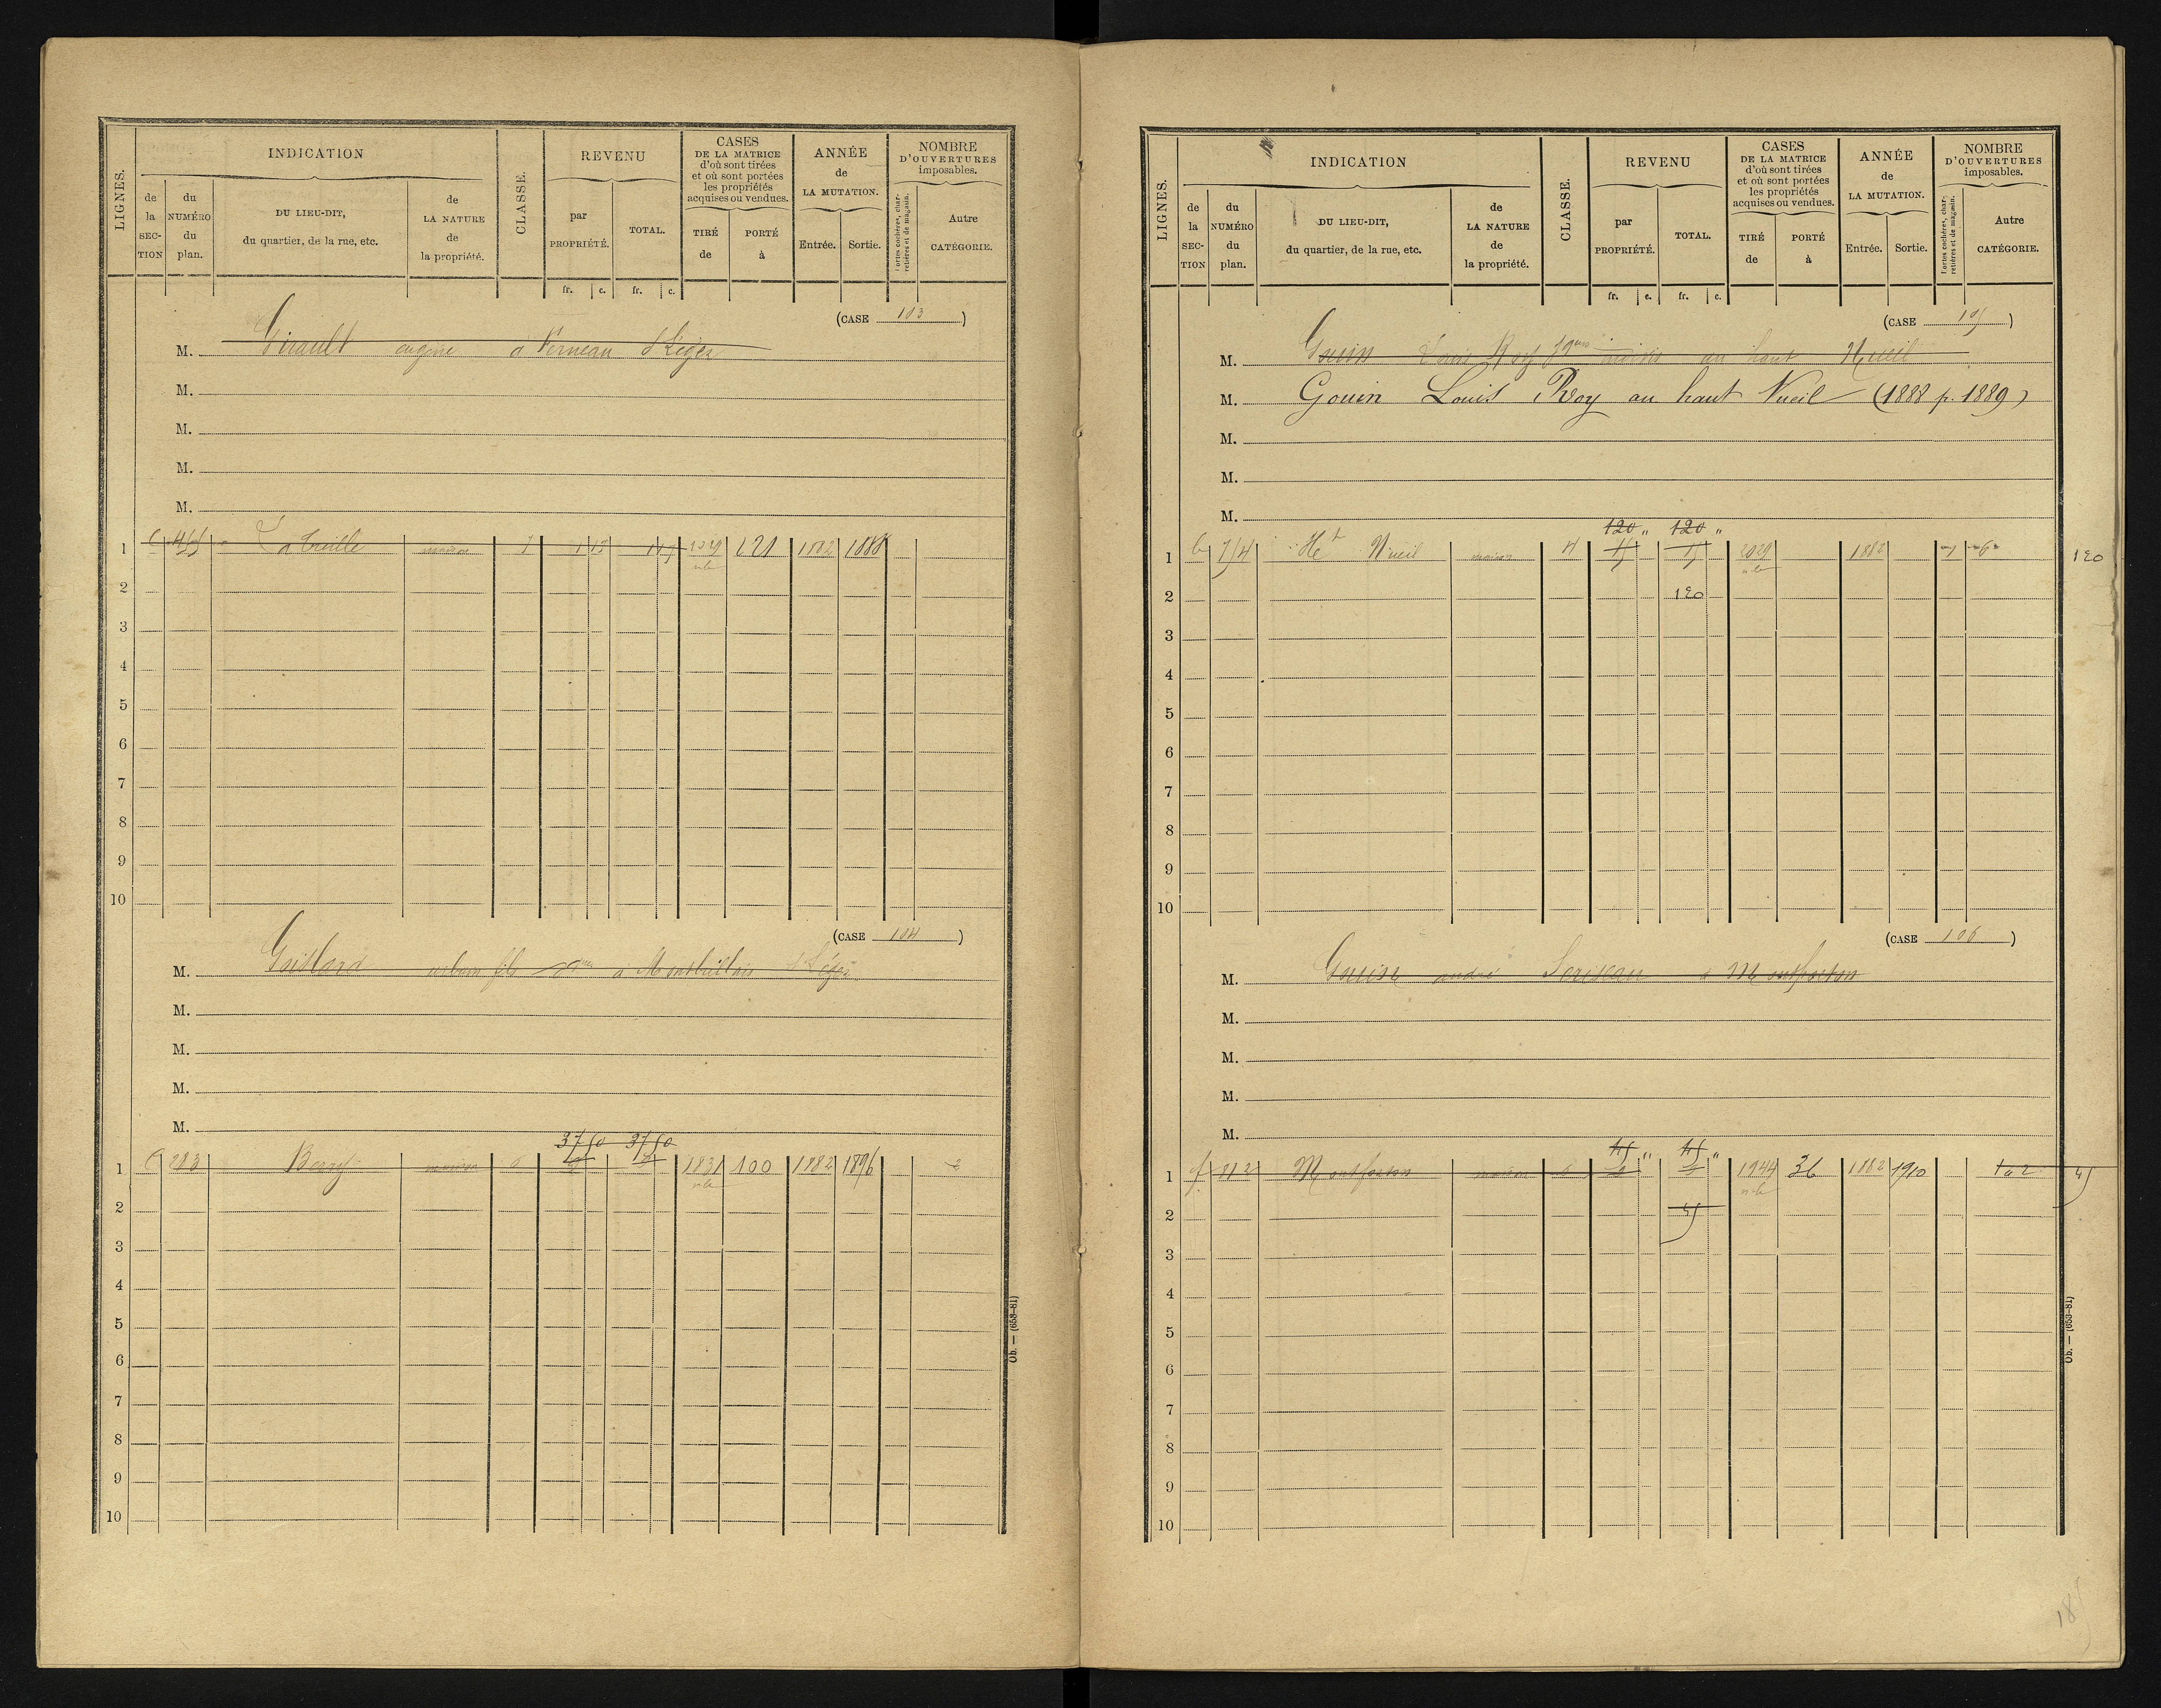 LIGNES.
INDICATION
CLASSE.
REVENU
CASES
DE LA MATRICE
d'où sont tirées
et où sont portées
les propriétés
acquises ou vendues.
ANNÉE
de
LA MUTATION.
NOMBRE
D'OUVERTURES
imposables.
de
la
SEC-
TION
du
NUMÉRO
du
plan.
DU LIEU-DIT,
du quartier, de la rue, etc.
de
LA NATURE
de
la propriété.
par
PROPRIÉTÉ.
TOTAL.
TIRÉ
de
PORTÉ
à
Entrée.
Sortie.
Portes cochères, char-
retières et de magasin.
Autre
CATÉGORIE.
fr. c. fr. c.
(CASE 103)
M. Girault eugène a Verneau St Léger
M.
M.
M.
M.
1 la treille maison 7 621 1882 1888
2
3
4
5
6
7
8
9
10
(CASE 104)
M. urbain fils a Montbrillais St Léger
M.
M.
M.
M.
37 50 37 50
1 283 Berry maison 6 1831 100 1882 1896 2
2
3
4
5
6
7
8
9
10
Ob. — (653-81)
LIGNES.
INDICATION
CLASSE.
REVENU
CASES
DE LA MATRICE
d'où sont tirées
et où sont portées
les propriétés
acquises ou vendues.
ANNÉE
de
LA MUTATION.
NOMBRE
D'OUVERTURES
imposables.
de
la
SEC-
TION
du
NUMÉRO
du
plan.
DU LIEU-DIT,
du quartier, de la rue, etc.
de
LA NATURE
de
la propriété.
par
PROPRIÉTÉ.
TOTAL.
TIRÉ
de
PORTÉ
à
Entrée.
Sortie.
Portes cochères, char-
retières et de magasin.
Autre
CATÉGORIE.
fr. c. fr. c.
(CASE 105)
M. Gouin Louis Roy au haut Nueil
M. Gouin Louis Roy au haut Nueil (1888 p. 1889)
M.
M.
M.
120 " 120 "
1 754 Ht Nueil maison 4 15 15 2029 1882 120
2 120
3
4
5
6
7
8
9
10
(CASE 106)
M. Gouin andré a Montfaston
M.
M.
M.
M.
45 " 45 "
1 f 812 Montfaston maison 6 1944 36 1882 1910 45
2 45
3
4
5
6
7
8
9
10
Ob. — (653-81)
185